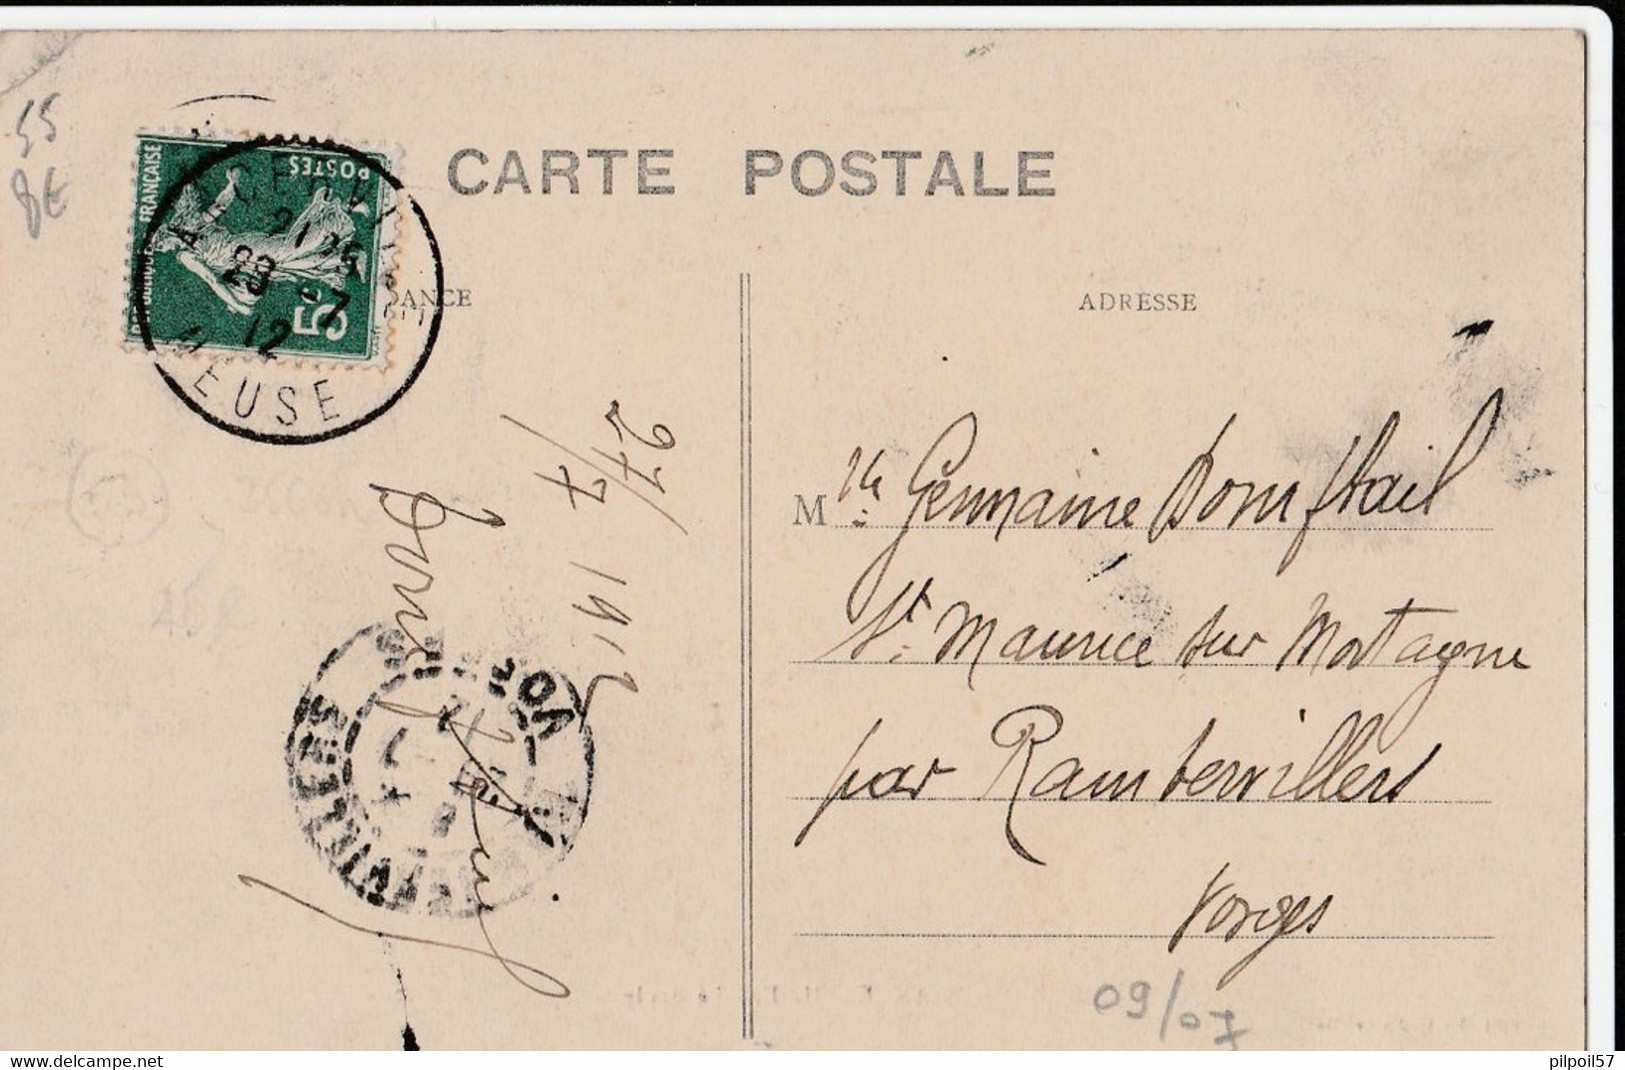 55
8€
CARTE POSTALE
RÉPUBLIQUE FRANÇAISE
POSTES
5c
21 25
28 -7
12
MEUSE
DANCE
ADRESSE
27/7 1912
Mlle Germaine
St Maurice sur Mortagne
par Rambervillers
Vosges
09/07
www.delcampe.net
pilpoil57